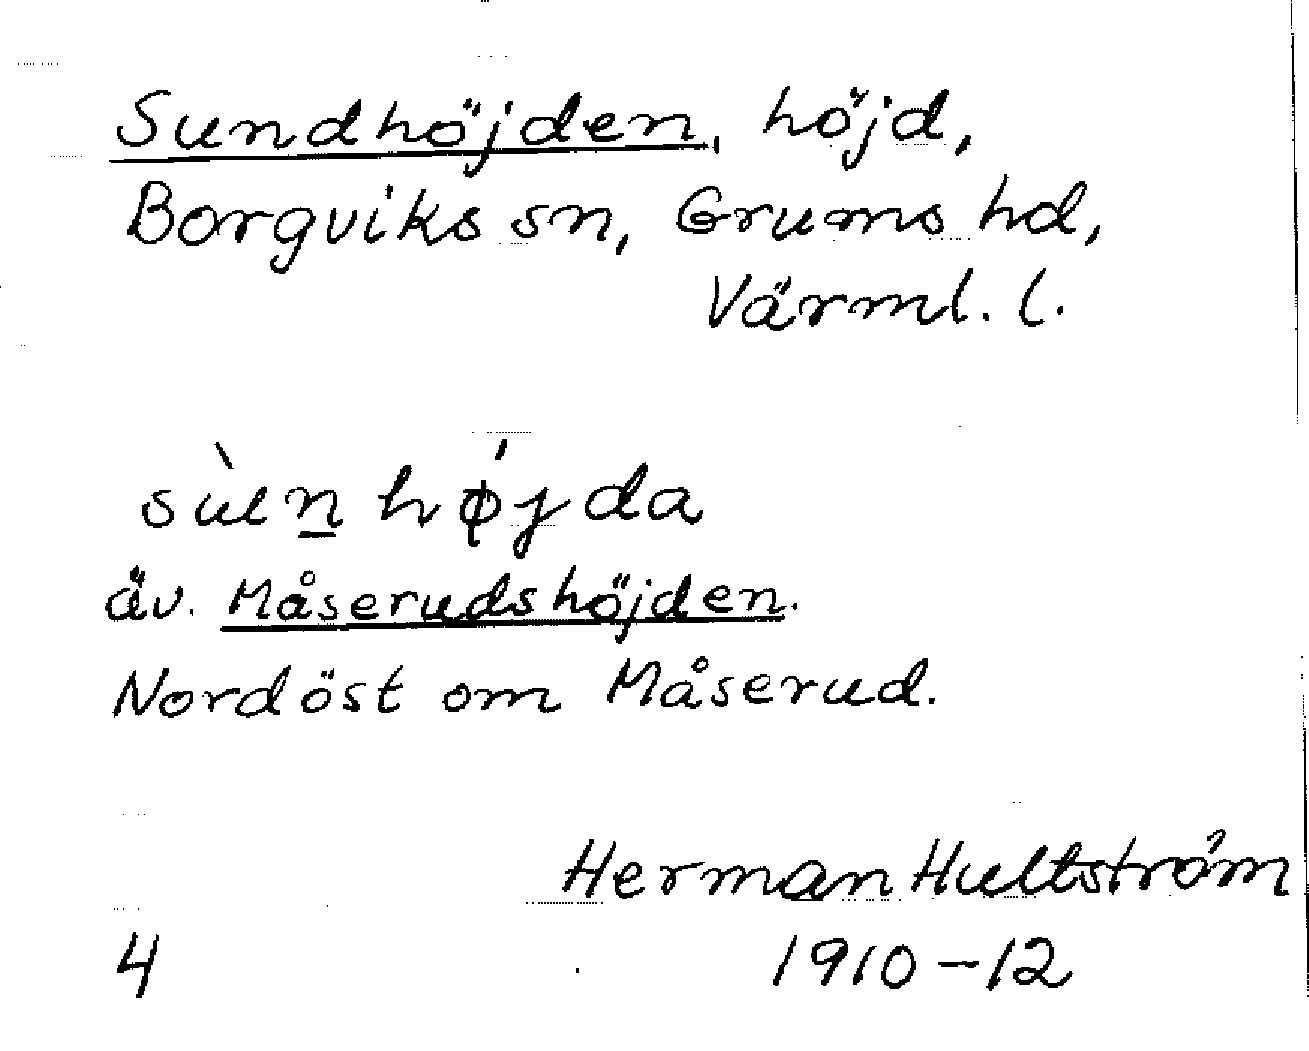 Sundhöjden, höjd,
Borgviks sn, Grums hd,
Värml. l.
sùn̲hǿjda
äv. Måserudshöjden.
Nordöst om Måserud.
Herman Hultström
4 1910-12